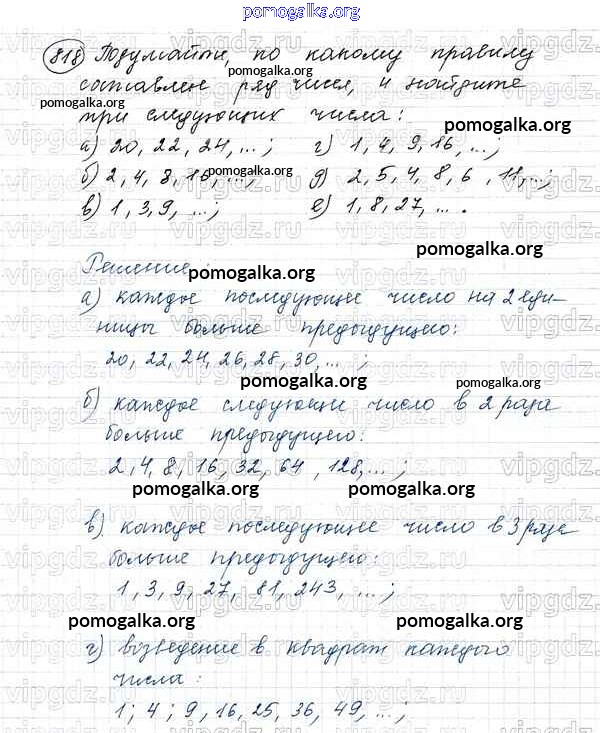 pomogalka.org
818) Подумайте, по какому правилу
составлен ряд чисел, и найдите
pomogalka.org
три следующих числа:
pomogalka.org
а) 20, 22, 24, ... ; г) 1, 4, 9, 16, ... ;
б) 2, 4, 8, 16, ... ; д) 2, 5, 4, 8, 6, 11, ... ;
pomogalka.org
в) 1, 3, 9, ... ; е) 1, 8, 27, ... .
pomogalka.org
Решение
pomogalka.org
а) каждое последующее число на 2 еди-
ницы больше предыдущего:
20, 22, 24, 26, 28, 30, ... ;
pomogalka.org pomogalka.org
б) каждое следующее число в 2 раза
больше предыдущего:
2, 4, 8, 16, 32, 64, 128, ... ;
pomogalka.org pomogalka.org
в) каждое последующее число в 3 раза
больше предыдущего:
1, 3, 9, 27, 81, 243, ... ;
pomogalka.org pomogalka.org
г) возведение в квадрат каждого
числа:
1; 4; 9, 16, 25, 36, 49, ... ;
vipgdz.ru